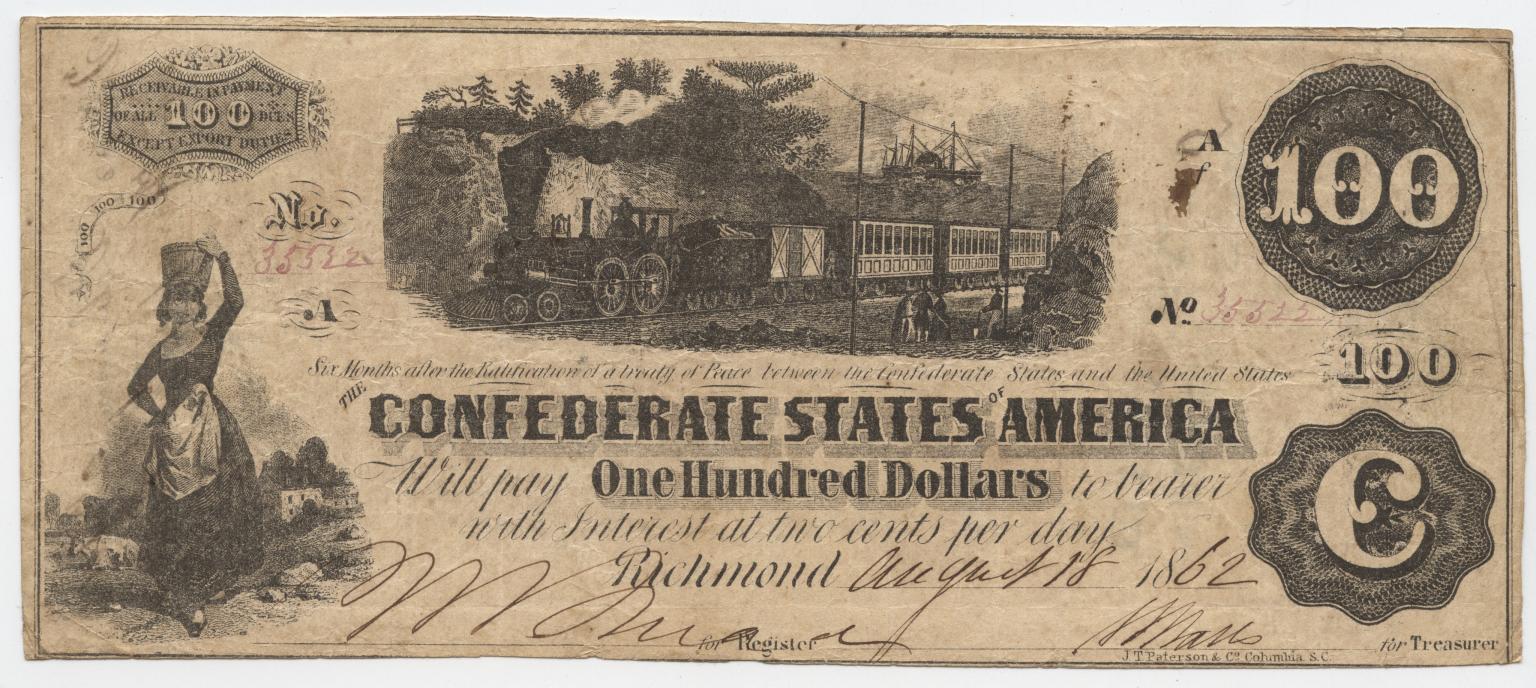 RECEIVABLE IN PAYMENT
OF ALL 100 DUES
EXCEPT EXPORT DUTIES
100 100 100
No.
35522
A
A
f
100
No 35522
100
Six Months after the Ratification of a treaty of Peace between the Confederate States and the United States
THE CONFEDERATE STATES OF AMERICA
Will pay One Hundred Dollars to bearer
with Interest at two cents per day
Richmond August 18 1862
C
for Register
for Treasurer
J.T. Paterson & Co. Columbia. S.C.